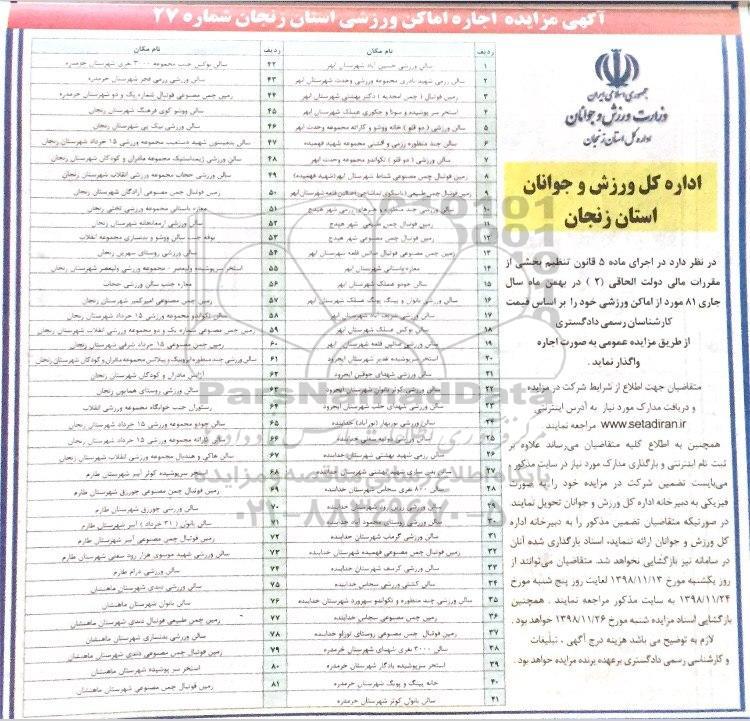 آگهی مزایده اجاره اماکن ورزشی استان زنجان شماره ۲۷
جمهوری اسلامی ایران
وزارت ورزش و جوانان
اداره کل استان زنجان
اداره کل ورزش و جوانان
استان زنجان
در نظر دارد در اجرای ماده ۵ قانون تنظیم بخشی از
مقررات مالی دولت الحاقی (۲) در بهمن ماه سال
جاری ۸۱ مورد از اماکن ورزشی خود را بر اساس قیمت
کارشناسان رسمی دادگستری
از طریق مزایده عمومی به صورت اجاره
واگذار نماید.
متقاضیان جهت اطلاع از شرایط شرکت در مزایده
و دریافت مدارک مورد نیاز به آدرس اینترنتی
www.setadiran.ir مراجعه نمایند
همچنین به اطلاع کلیه متقاضیان می‌رساند علاوه بر
ثبت نام اینترنتی و بارگذاری مدارک مورد نیاز در سایت مذکور
می‌بایست تضمین شرکت در مزایده خود را به صورت
فیزیکی به دبیرخانه اداره کل ورزش و جوانان تحویل نمایند
در صورتیکه متقاضیان تضمین مذکور را به دبیرخانه اداره
کل ورزش و جوانان ارائه ننماید، اسناد بارگذاری شده آنان
در سامانه نیز بازگشایی نخواهد شد. متقاضیان می‌توانند از
روز یکشنبه مورخ ۱۳۹۸/۱۱/۱۳ لغایت روز پنج شنبه مورخ
۱۳۹۸/۱۱/۲۴ به سایت مذکور مراجعه نمایند. همچنین
بازگشایی اسناد مزایده شنبه مورخ ۱۳۹۸/۱۱/۲۶ خواهد بود.
لازم به توضیح می باشد هزینه درج آگهی، تبلیغات
و کارشناسی رسمی دادگستری بر عهده برنده مزایده خواهد بود.
ردیف نام مکان
۱ سالن ورزشی حسین آباد شهرستان ابهر
۲ سالن رزمی شهید نادری مجموعه ورزشی وحدت شهرستان ابهر
۳ زمین فوتبال (چمن امجدیه) دکتر بهشتی شهرستان ابهر
۴ استخر سرپوشیده و سونا و جکوزی عملنک شهرستان ابهر
۵ سالن ورزشی (دو قلو) خانه ووشو و کاراته مجموعه وحدت ابهر
۶ سالن چند منظوره رزمی و کشتی مجموعه شهید فهمیده
۷ سالن ورزشی (دو قلو) تکواندو مجموعه وحدت ابهر
۸ زمین فوتبال چمن مصنوعی شناط شهرستان ابهر (شهید فهمیده)
۹ زمین فوتبال چمن طبیعی
۱۰ سالن ورزشی چند منظوره و هنرهای رزمی شهر هیدج
۱۱ زمین فوتبال چمن طبیعی شهر هیدج
۱۲ زمین فوتبال چمن مصنوعی شهر هیدج
۱۳ زمین فوتبال چمن مصنوعی صائین قلعه شهرستان ابهر
۱۴ مغازه باستانی شهرستان ابهر
۱۵ سالن جودو عملنک شهرستان ابهر
۱۶ سالن ورزشی بانوان و پینگ پونگ عملنک شهرستان ابهر
۱۷ سالن ورزشی شریف آباد شهرستان ابهر
۱۸ سالن بوکس عملنک شهرستان ابهر
۱۹ سالن ورزشی صائین قلعه شهرستان ابهر
۲۰ استخر سرپوشیده غدیر شهرستان ایجرود
۲۱ سالن ورزشی شهدای حوقین ایجرود
۲۲ سالن ورزشی کوثر بانوان شهرستان ایجرود
۲۳ سالن ورزشی شهدای حلب شهرستان ایجرود
۲۴ سالن ورزشی نوربهار (نورآباد) خدابنده
۲۵ سالن ورزشی شهرستان خدابنده
۲۶ سالن رزمی شهید بهشتی شهرستان خدابنده
۲۷ سالن بدن سازی شهید بهشتی شهرستان خدابنده
۲۸ سالن ۸۰۰ نفری سجاس شهرستان خدابنده
۲۹ سالن ورزشی زرین رود شهرستان خدابنده
۳۰ سالن ورزشی روستای محمود آباد خدابنده
۳۱ سالن ورزشی گرماب شهرستان خدابنده
۳۲ زمین فوتبال چمن مصنوعی فهمیده شهرستان خدابنده
۳۳ سالن ورزشی کرسف شهرستان خدابنده
۳۴ سالن کشتی ورزشی سجاس خدابنده
۳۵ سالن ورزشی چند منظوره و تکواندو سهرورد شهرستان خدابنده
۳۶ زمین چمن مصنوعی سجاس خدابنده
۳۷ زمین فوتبال چمن مصنوعی روستای توزلو خدابنده
۳۸ سالن ۳۰۰۰ نفری شهدای شهرستان خرمدره
۳۹ استخر سرپوشیده یادگار شهرستان خرمدره
۴۰ خانه پینگ و پونگ شهرستان خرمدره
۴۱ سالن بانوان کوثر شهرستان خرمدره
ردیف نام مکان
۴۲ سالن بوکس جنب مجموعه ۳۰۰۰ نفری شهرستان خرمدره
۴۳ سالن ورزشی رزمی فجر شهرستان خرمدره
۴۴ زمین چمن مصنوعی فوتبال شماره یک و دو شهرستان خرمدره
۴۵ سالن ووشو کوی فرهنگ شهرستان زنجان
۴۶ سالن ورزشی نیک پی شهرستان زنجان
۴۷ سالن بدمینتون شهید دستغیب مجموعه ورزشی ۱۵ خرداد شهرستان زنجان
۴۸ سالن ورزشی ژیمناستیک مجموعه مادران و کودکان شهرستان زنجان
۴۹ سالن ورزشی حجاب مجموعه ورزشی انقلاب شهرستان زنجان
۵۰ زمین فوتبال چمن مصنوعی آزادگان شهرستان زنجان
۵۱ مغازه باستانی مجموعه ورزشی تختی زنجان
۵۲ سالن ورزشی ارمغانخانه شهرستان زنجان
۵۳ بوفه جنب سالن ووشو و بدنسازی مجموعه انقلاب
۵۴ سالن ورزشی روستای سهرین زنجان
۵۵ استخر سرپوشیده ولیعصر - مجموعه ورزشی ولیعصر شهرستان زنجان
۵۶ مغازه جنب سالن ورزشی حجاب
۵۷ زمین چمن مصنوعی امیرکبیر شهرستان زنجان
۵۸ سالن تکواندو مجموعه ورزشی ۱۵ خرداد شهرستان زنجان
۵۹ زمین چمن مصنوعی شماره یک و دو مجموعه ورزشی انقلاب شهرستان زنجان
۶۰ زمین چمن مصنوعی ۱۵ خرداد شرقی شهرستان زنجان
۶۱ سالن ورزشی چند منظوره ایروبیک و پیلاتس مجموعه مادران و کودکان شهرستان زنجان
۶۲ آژانس مادران و کودکان شهرستان زنجان
۶۳ سالن ورزشی روستای همایون زنجان
۶۴ رستوران جنب خوابگاه مجموعه ورزشی انقلاب
۶۵ سالن جودو مجموعه ورزشی ۱۵ خرداد شهرستان زنجان
۶۶ سالن کاراته مجموعه ورزشی ۱۵ خرداد شهرستان زنجان
۶۷ سالن هاکی و هندبال مجموعه ورزشی انقلاب شهرستان زنجان
۶۸ استخر سرپوشیده کوثر آببر شهرستان طارم
۶۹ زمین فوتبال چمن مصنوعی چورزق شهرستان طارم
۷۰ سالن ورزشی چورزق شهرستان طارم
۷۱ سالن بانوان (۳۱ خرداد) آببر شهرستان طارم
۷۲ زمین فوتبال چمن مصنوعی آببر شهرستان طارم
۷۳ سالن ورزشی شهید موسوی هزار رود سفلی شهرستان طارم
۷۴ سالن ورزشی درام طارم
۷۵ سالن ورزشی دندی شهرستان ماهنشان
۷۶ سالن بانوان شهرستان ماهنشان
۷۷ زمین چمن طبیعی فوتبال دندی شهرستان ماهنشان
۷۸ سالن ورزشی بدنسازی شهرستان ماهنشان
۷۹ زمین فوتبال چمن مصنوعی دندی شهرستان ماهنشان
۸۰ استخر سرپوشیده شهرستان ماهنشان
۸۱ زمین فوتبال چمن مصنوعی شهرستان ماهنشان
ParsNamadData
۰۲۱-۸۸۳۴۹۶۷۰-۵